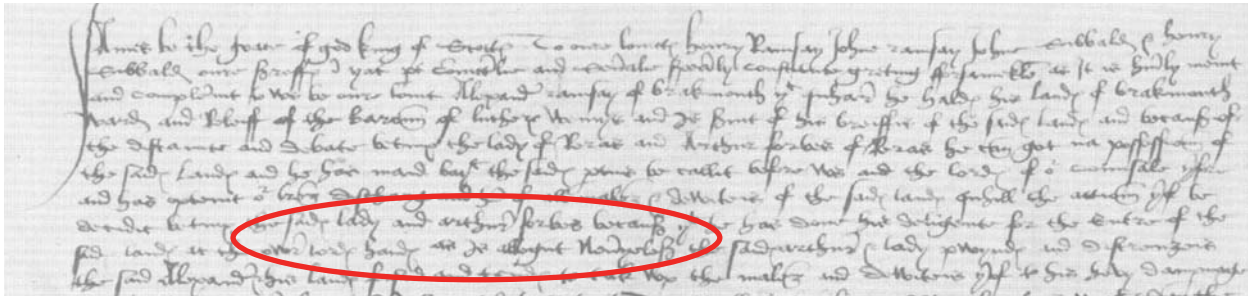 James be the grace of god king of Scottis To oure lovittis henry Ramsay Johne ramsay Johne Sibbald & henry
Sibbald oure shreffis in yat pt conuictlie and seuerale specialy constitute greting forsamekle as It is humly ment
and complenit to ws be oure louit Alexander ramsay of brakmonth yt quhar he haldis his landis of brakmonth
ward and Releiff of the barony of luthers wemys and Is furit of his breiffis of the saidis landis and becauss of
the distance and debate betuix the lady of Reras and Arthur forbes of Reras he can get na possessioun of
the saidis landis and he has maid baith the saidis pties be callit before ws and the lordis of or counsale
and has optenit or discharge of the saidis landis quhill the actioun yrof be
decidit betuix the saidis lady and arthur forbes becauss yt he has done his deligence for the entre of the
said landis at the over lordis handis as Is allegit Neuirtheless the said arthur & lady poyndis and distrenzeis
the said Alexander his landis and to tak vp the malis and dewiteis yrof to his hevy dampnage